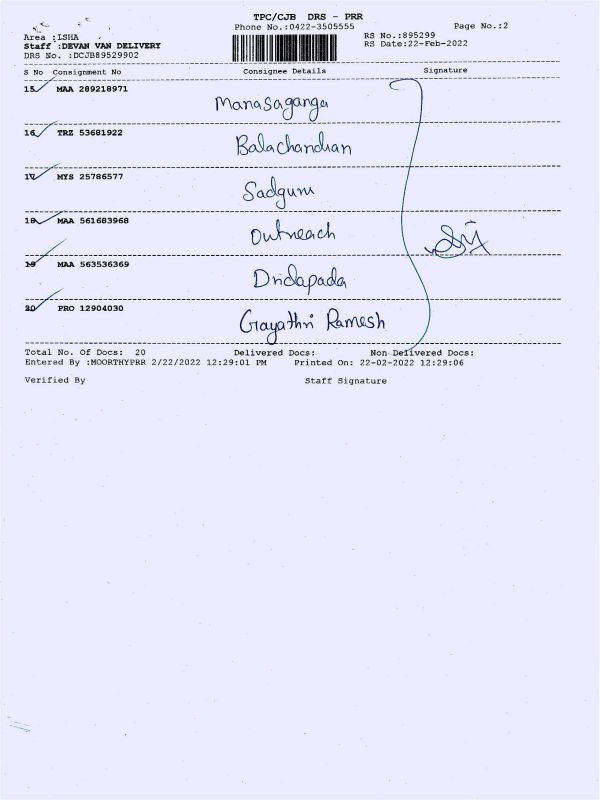 TPC/CJB DRS - PRR
Phone No.:0422-3505555 Page No.:2
Area :ISHA RS No.:895299
Staff :DEVAN VAN DELIVERY RS Date:22-Feb-2022
DRS No. :DCJB89529902
S No Consignment No Consignee Details Signature
15 MAA 289218971
Manasaganga
16 TRZ 53681922
Balachandran
17 MYS 25786577
Sadguru
18 MAA 561683968
Outreach
19 MAA 563536369
Dridapada
20 PRO 12904030
Gayathri Ramesh
Total No. Of Docs: 20 Delivered Docs: Non Delivered Docs:
Entered By :MOORTHYPRR 2/22/2022 12:29:01 PM Printed On: 22-02-2022 12:29:06
Verified By Staff Signature